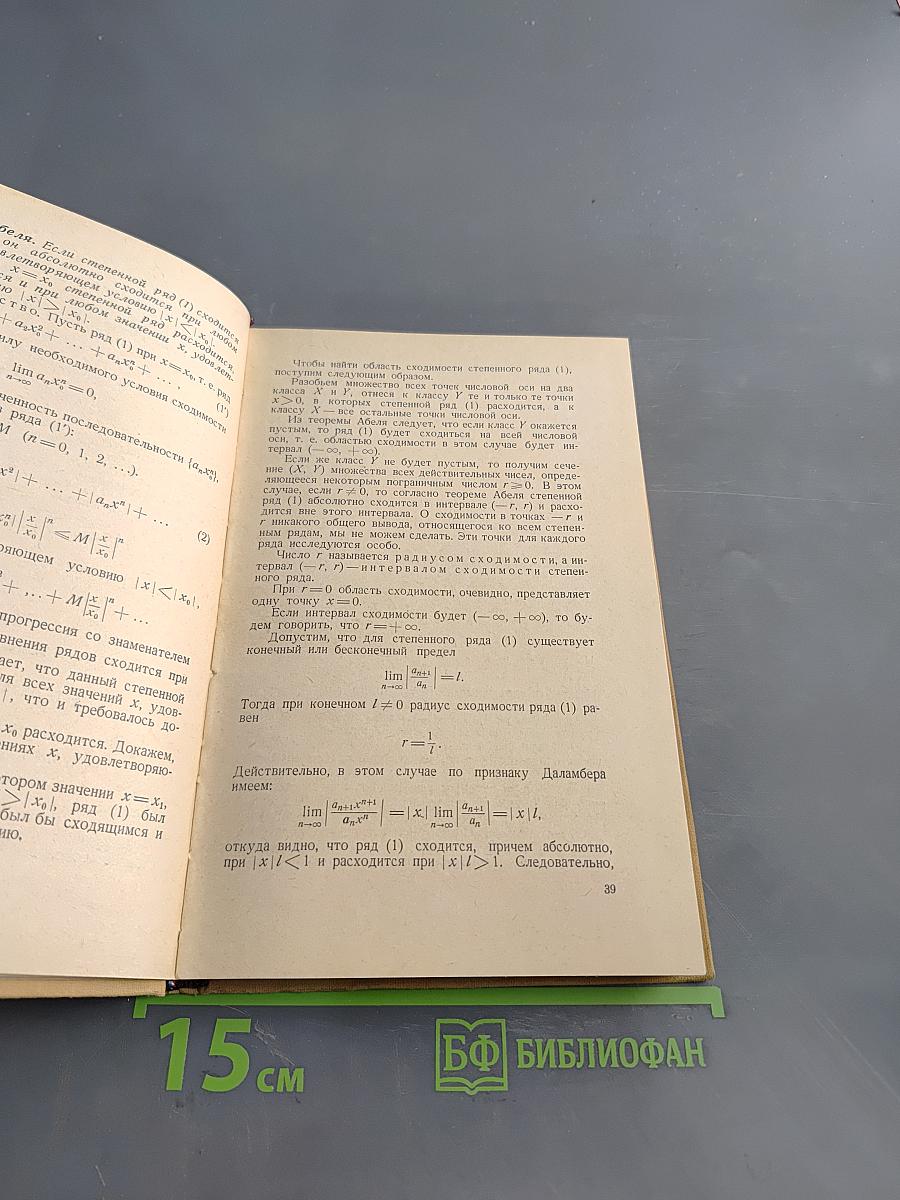 беля. Если степенной ряд (1) сходится
он абсолютно сходится при любом
влетворяющем условию |x|<|x₀|.
x=x₀ степенной ряд расходится,
ся и при любом значении x, удовлет-
ю |x|>|x₀|.
ство. Пусть ряд (1) при x=x₀, т. е. ряд
+a₂x₀²+ ... +aₙx₀ⁿ+ ... , (1′)
илу необходимого условия сходимости
lim aₙx₀ⁿ=0,
n→∞
ченность последовательности {aₙx₀ⁿ},
в ряда (1′):
M (n=0, 1, 2, ...).
x²|+ ... +|aₙxⁿ|+ ...
|x/x₀|ⁿ ≤ M|x/x₀|ⁿ (2)
ряющем условию |x|<|x₀|,
+ ... +M|x/x₀|ⁿ+ ...
прогрессия со знаменателем
внения рядов сходится при
ает, что данный степенной
ля всех значений x, удов-
|, что и требовалось до-
x₀ расходится. Докажем,
ниях x, удовлетворяю-
отором значении x=x₁,
>|x₀|, ряд (1) был
был бы сходящимся и
ию,
Чтобы найти область сходимости степенного ряда (1),
поступим следующим образом.
Разобьем множество всех точек числовой оси на два
класса X и Y, отнеся к классу Y те и только те точки
x>0, в которых степенной ряд (1) расходится, а к
классу X — все остальные точки числовой оси.
Из теоремы Абеля следует, что если класс Y окажется
пустым, то ряд (1) будет сходиться на всей числовой
оси, т. е. областью сходимости в этом случае будет ин-
тервал (—∞, +∞).
Если же класс Y не будет пустым, то получим сече-
ние (X, Y) множества всех действительных чисел, опреде-
ляющееся некоторым пограничным числом r⩾0. В этом
случае, если r≠0, то согласно теореме Абеля степенной
ряд (1) абсолютно сходится в интервале (—r, r) и расхо-
дится вне этого интервала. О сходимости в точках —r и
r никакого общего вывода, относящегося ко всем степен-
ным рядам, мы не можем сделать. Эти точки для каждого
ряда исследуются особо.
Число r называется радиусом сходимости, а ин-
тервал (—r, r) — интервалом сходимости степен-
ного ряда.
При r=0 область сходимости, очевидно, представляет
одну точку x=0.
Если интервал сходимости будет (—∞, +∞), то бу-
дем говорить, что r=+∞.
Допустим, что для степенного ряда (1) существует
конечный или бесконечный предел
lim |aₙ₊₁/aₙ|=l.
n→∞
Тогда при конечном l≠0 радиус сходимости ряда (1) ра-
вен
r=1/l.
Действительно, в этом случае по признаку Даламбера
имеем:
lim |aₙ₊₁xⁿ⁺¹/aₙxⁿ|=|x| lim |aₙ₊₁/aₙ|=|x|l,
n→∞ n→∞
откуда видно, что ряд (1) сходится, причем абсолютно,
при |x|l<1 и расходится при |x|l>1. Следовательно,
39
15 см
БФ БИБЛИОФАН